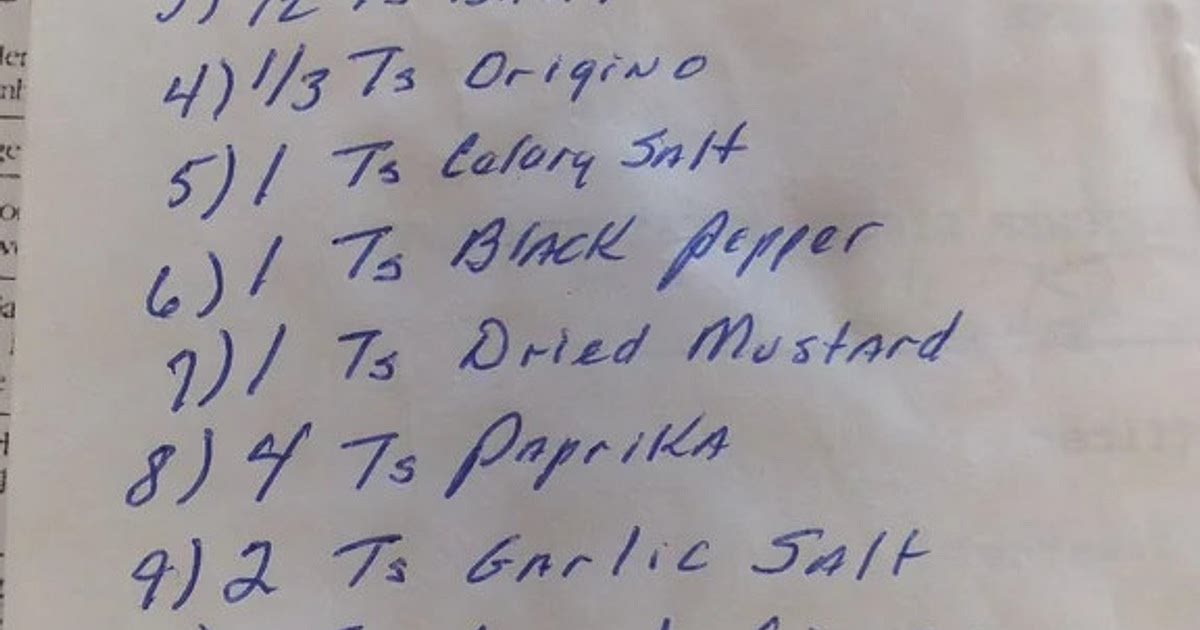 4) 1/3 Ts Origino
5) 1 Ts Celary Salt
6) 1 Ts Black Pepper
7) 1 Ts Dried Mustard
8) 4 Ts Paprika
9) 2 Ts Garlic Salt